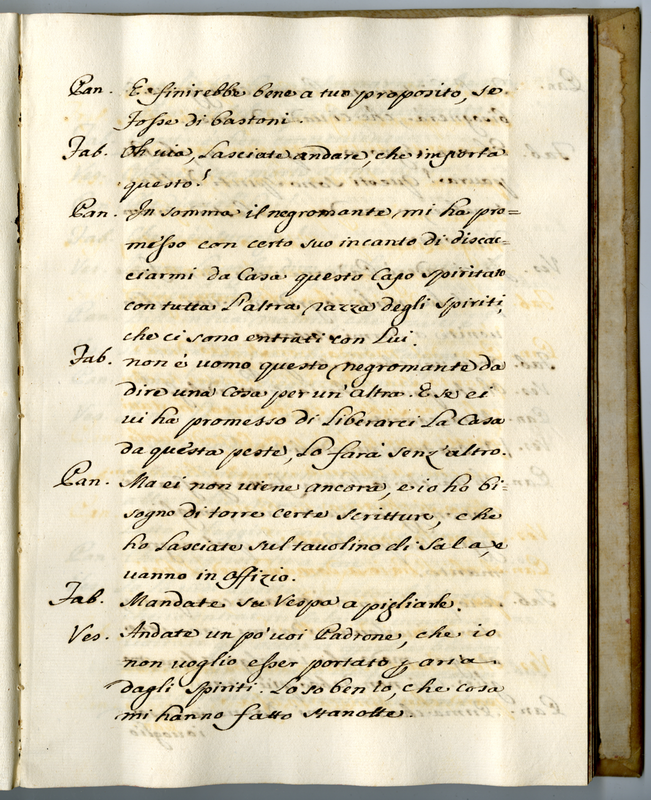 Pan. E finirebbe bene a tuo proposito, se
fosse di bastoni.
Fab. Oh via, Lasciate andare, che importa
questo?
Pan. In somma il negromante mi ha pro=
messo con certo suo incanto di discac=
ciarmi da Casa questo Capo spiritato
con tutta L'altra razza degli spiriti,
che ci sono entrati con Lui.
Fab. non è uomo questo negromante da
dire una Cosa per un'altra. E se ei
vi ha promesso di Liberarci La Casa
da questa peste, Lo farà senz'altro.
Pan. Ma ei non viene ancora, e io ho bi=
sogno di torre certe scritture, che
ho Lasciate sul tavolino di Sala, e
vanno in Offizio.
Fab. Mandate su Vespa a pigliarle.
Ves. Andate un po' voi Padrone, che io
non voglio esser portato p aria
dagli spiriti. Lo so ben io, che cosa
mi hanno fatto stanotte.